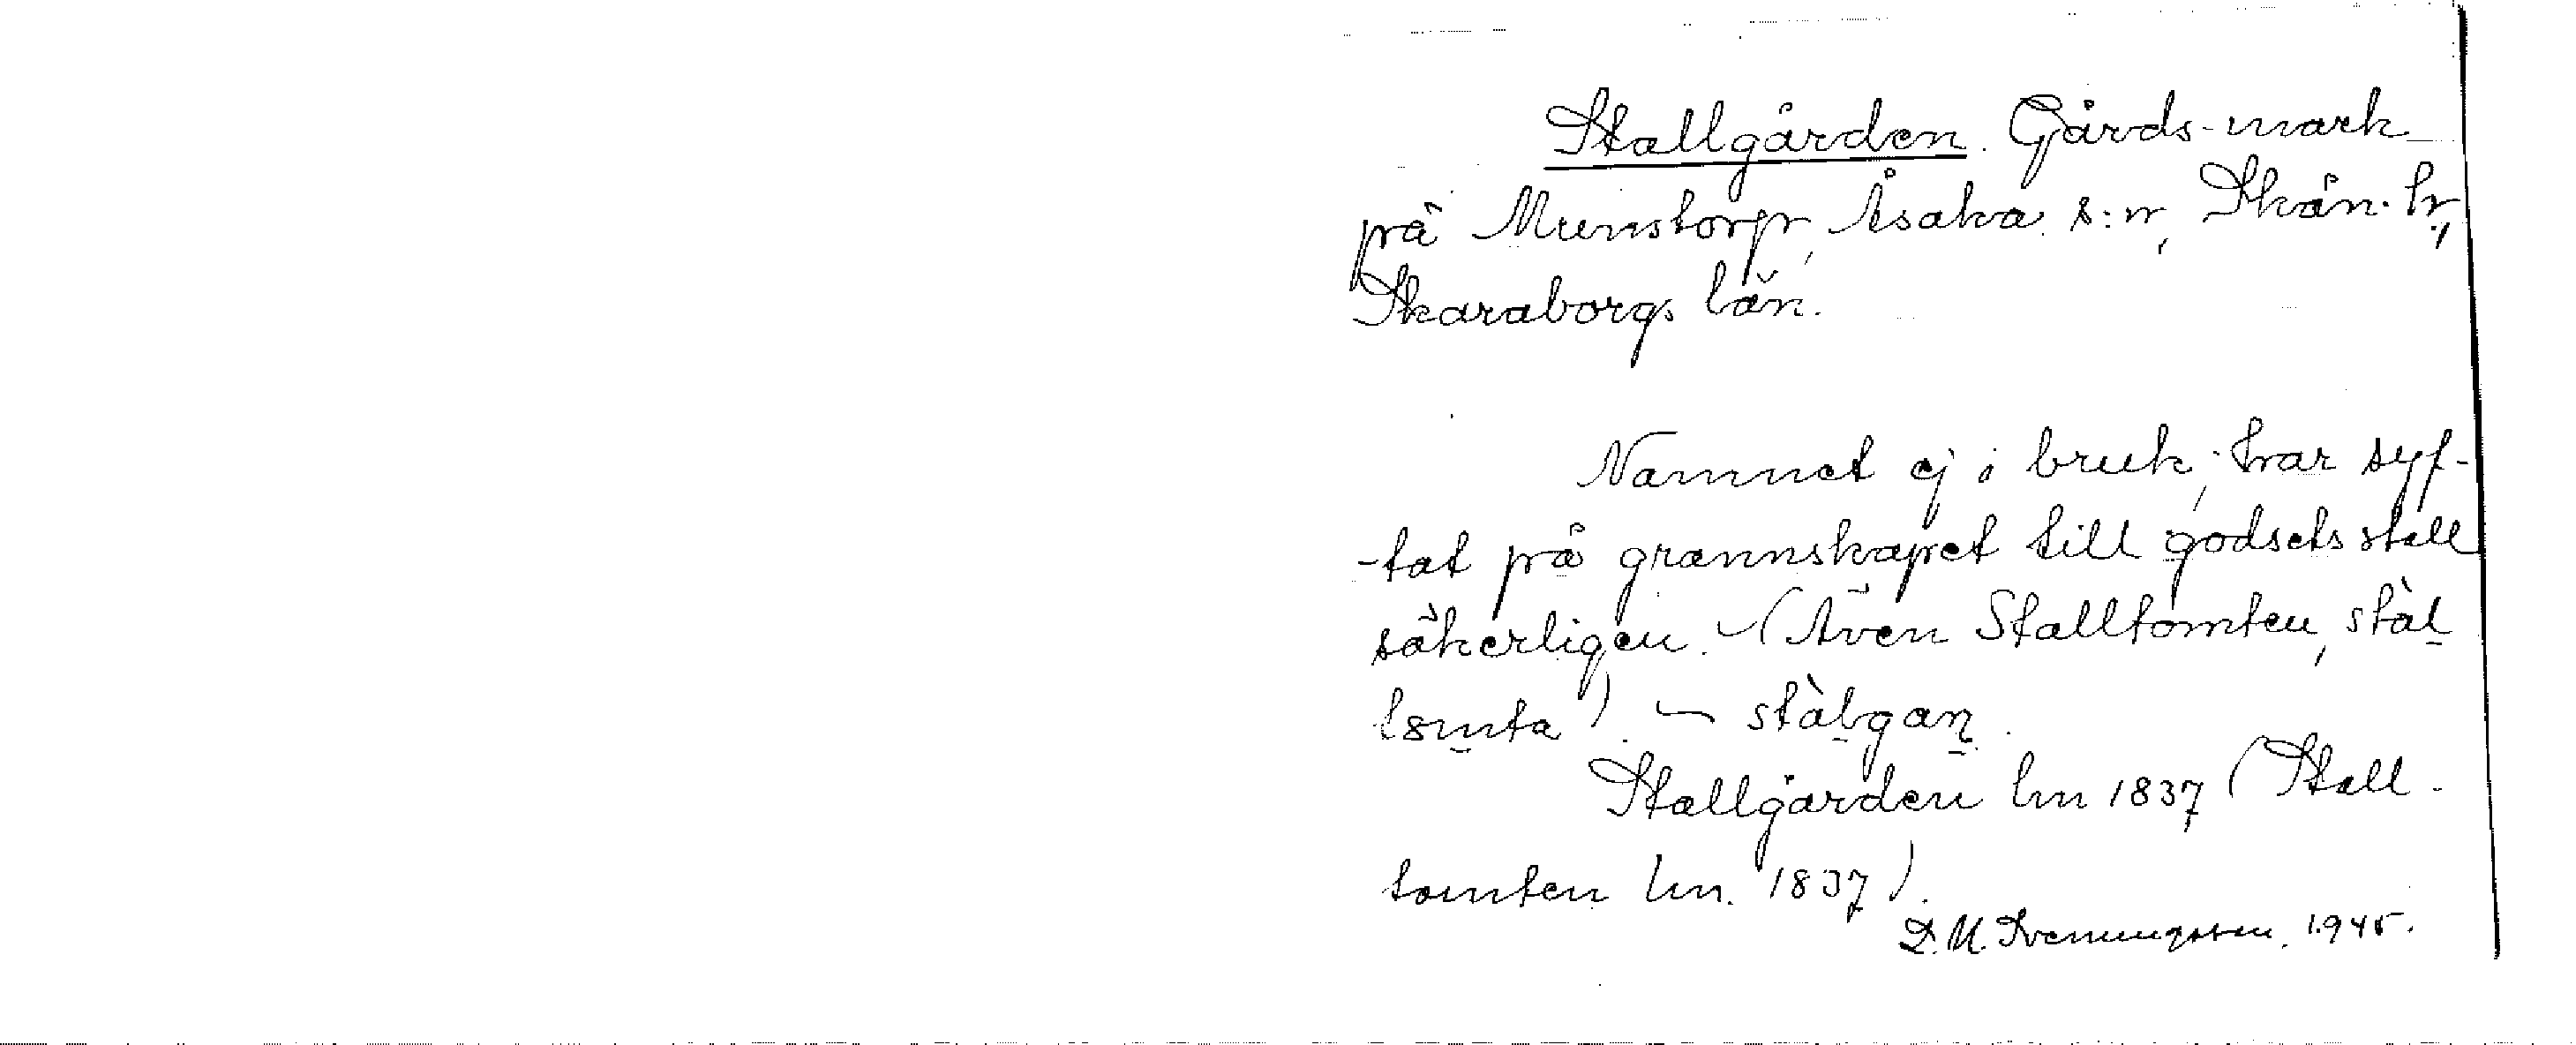 Stallgården. Gårds-mark
på Munstorp, Åsaka s:n, Skån. hr,
Skaraborgs län.
Namnet ej i bruk; har syf-
-tat på grannskapet till godsets stall
säkerligen. – (Även Stalltomten, stàl
tomta). – stàlgan.
Stallgården lm 1837 (Stall-
tomten lm. 1837).
D. M. Svenungsson. 1945.